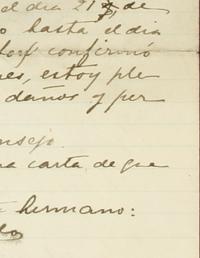 el dia 21 de
hasta el dia
confirmó
estoy ple
daños y per
nsejo.
na carta de que
hermano: